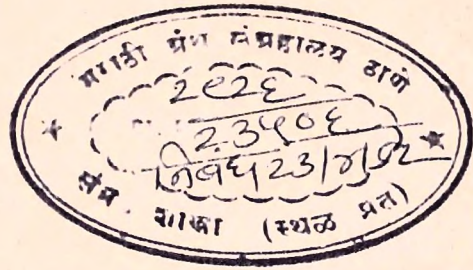 मराठी ग्रंथ संग्रहालय ठाणे
२९२६
२३५०६
निबंध
संग्र. शाखा (स्थळ प्रत)